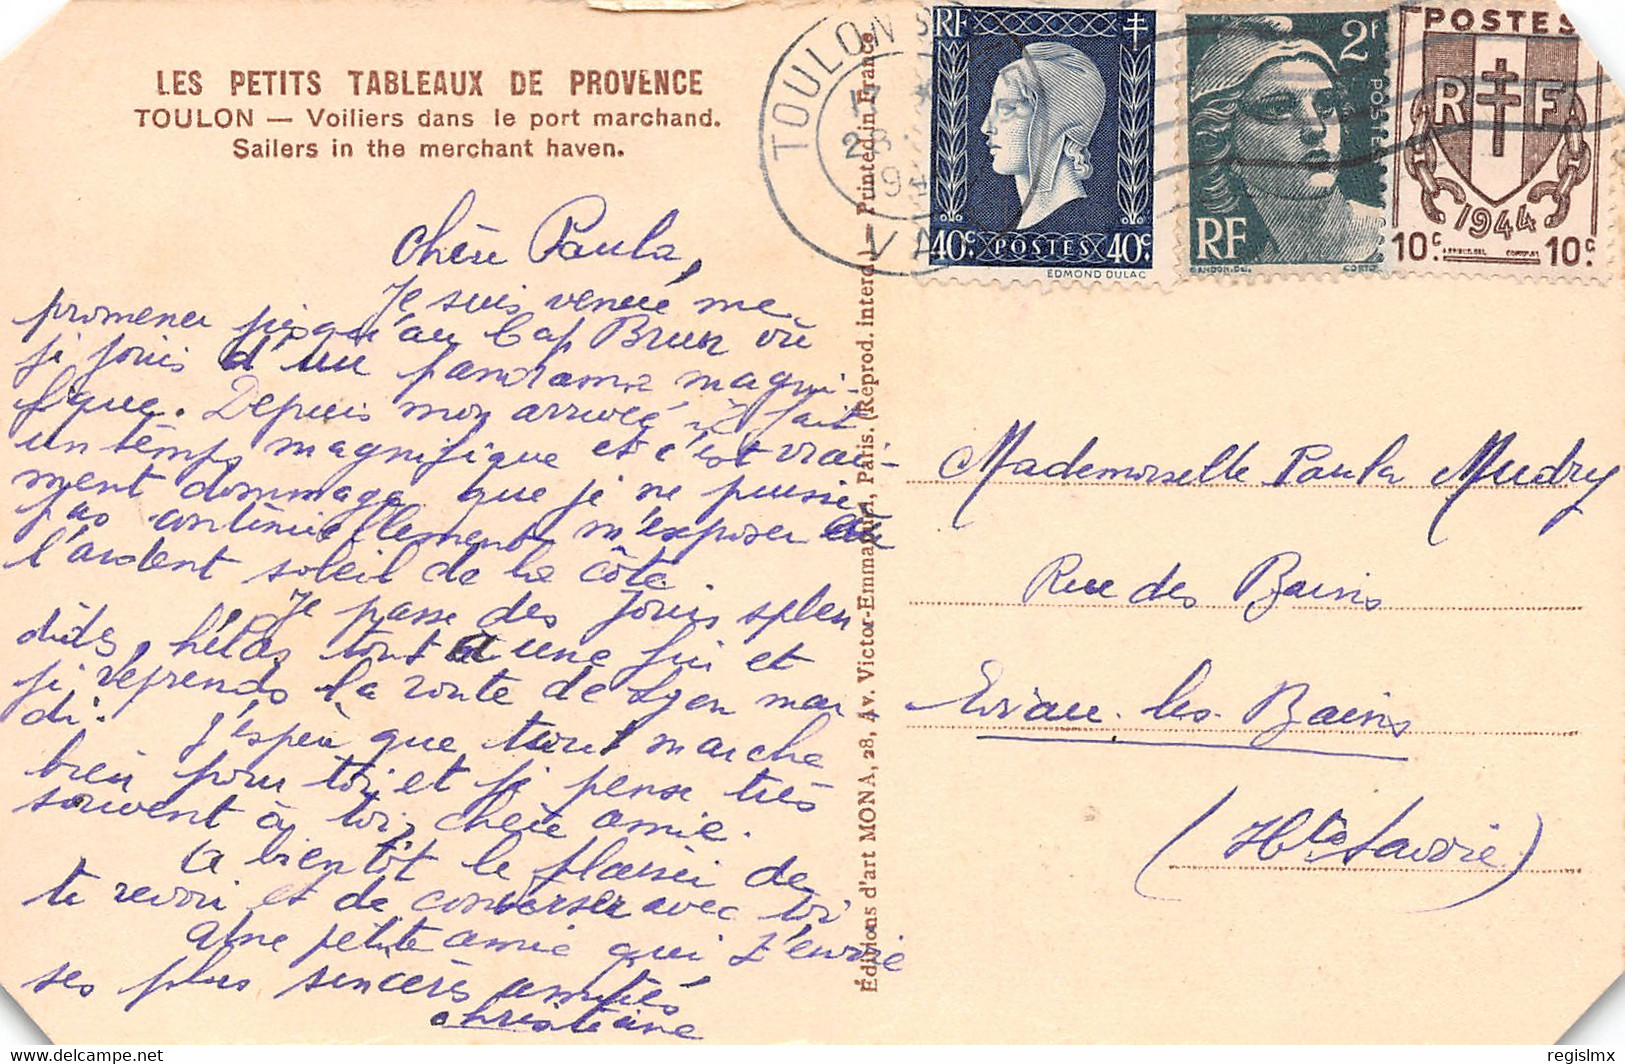 LES PETITS TABLEAUX DE PROVENCE
TOULON — Voiliers dans le port marchand.
Sailers in the merchant haven.
chère Paula,
Je suis venue me
promener jusqu'au Cap Brun où
je jouis d'un panorama magni-
fique. Depuis mon arrivée il fait
un temps magnifique et c'est vrai-
ment dommage que je ne puisse
pas continuellement m'exposer à
l'ardent soleil de la côte.
Je passe des jours splen
dides, hélas tout a une fin et
je reprends la route de Lyon mar
di. J'espère que tout marche
bien pour toi et je pense très
souvent à toi, chère amie.
A bientôt le plaisir de
te revoir et de converser avec toi
Une petite amie qui t'envoie
ses plus sincères amitiés
christiane
Éditions d'art MONA, 28, Av. Victor-Emmanuel, Paris. (Reprod. interd.) — Printed in France
TOULON S
17
28
94
VAR
RF
40c POSTES 40c
EDMOND DULAC
2F
POSTES
RF
GANDON.Del.
CORTOT
POSTES
R F
1944
10c 10c
Mademoiselle Paula Mudry
Rue des Bains
Evian-les-Bains
(Hte Savoie)
regislmx @ delcampe.net